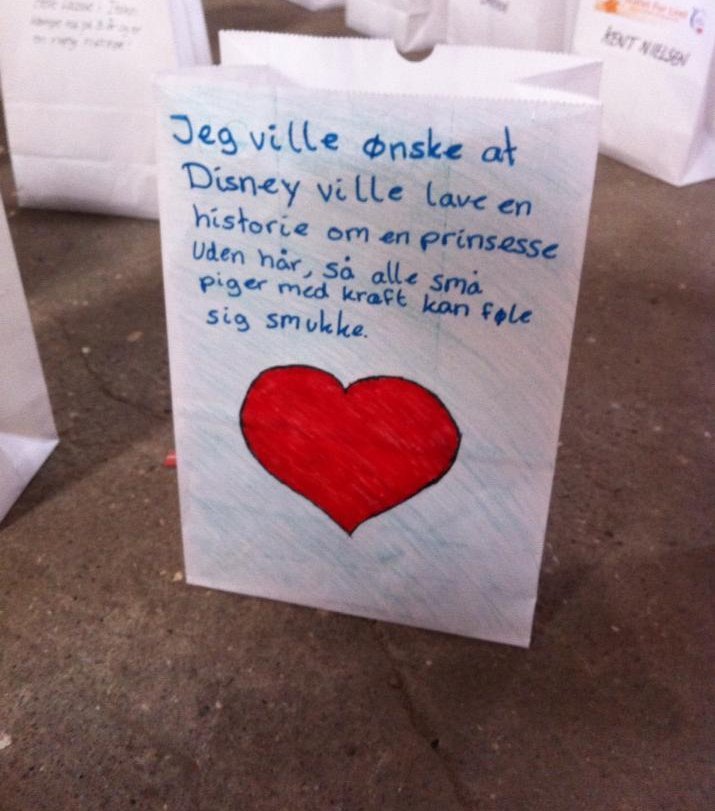 Jeg ville ønske at
Disney ville lave en
historie om en prinsesse
uden hår, så alle små
piger med kræft kan føle
sig smukke.
KENT NIELSEN